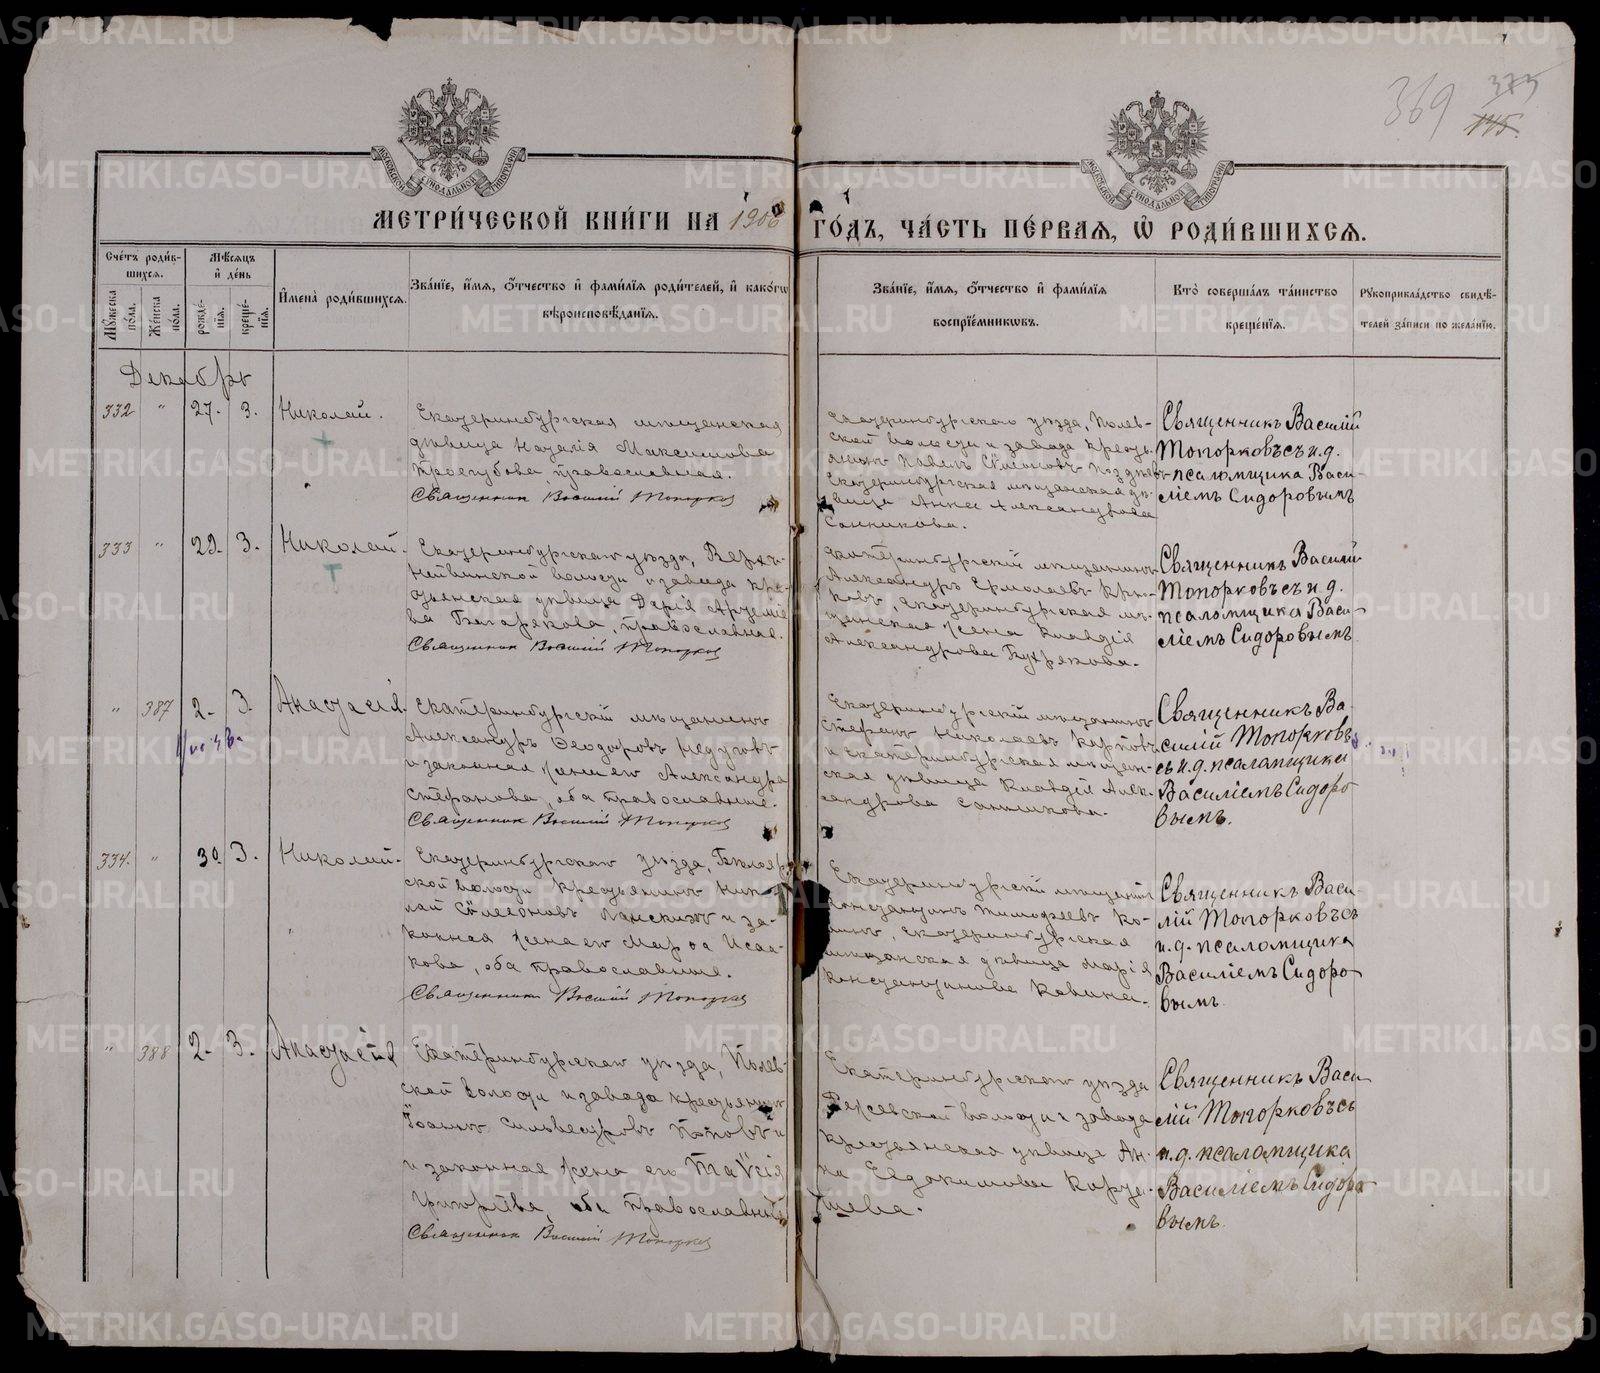 369 375
145.
МОСКОВСКОЙ СѴНОДАЛЬНОЙ ТИПОГРАФІИ
МОСКОВСКОЙ СѴНОДАЛЬНОЙ ТИПОГРАФІИ
МЕТРИ́ЧЕСКОЙ КНИ́ГИ НА 1906 ГО́ДЪ, ЧА́СТЬ ПЕ́РВАЯ, Ѡ҆ РОДИ́ВШИХСѦ.
Сче́тъ роди́в-
шихся.
Мѣсяцъ
и҆ де́нь
Мꙋ́жеска по́ла.
Же́нска по́ла.
рожде́-
нїя.
креще́-
нїя.
И҆мена̀ роди́вшихся.
Зва́нїе, и҆́мя, о҆́тчество и҆ фами́лїя роди́телей, и҆ како́гѡ
вѣроисповѣ́данїя.
Зва́нїе, и҆́мя, о҆́тчество и҆ фами́лїя
воспрїе́мникѡвъ.
Кто̀ соверша́лъ та́инство
креще́нїя.
Рꙋкоприкла́дство свидѣ́-
телей за́писи по жела́нїю.
Декабрь
332 " 27. 3. Николай.
Екатеринбургская мѣщанская
дѣвица Наталія Максимова
православная.
Священникъ Василій Топорковъ
Екатеринбургскаго уѣзда, Полев-
ской волости и завода кресть-
янинъ Павелъ Симеоновъ
Екатеринбургская мѣщанская дѣ-
вица Анна Александрова
Санникова.
Священникъ Василій
Топорковъ съ и. д.
псаломщика Васи-
ліемъ Сидоровымъ
333 " 29. 3. Николай.
Екатеринбургскаго уѣзда, Верхъ-
Нейвинской волости и завода кре-
стьянская дѣвица Дарія Артеміе-
ва православная.
Священникъ Василій Топорковъ
Екатеринбургскій мѣщанинъ
Александръ Ермолаевъ Крю-
ковъ, Екатеринбургская мѣ-
щанская жена Клавдія
Александрова
Священникъ Василій
Топорковъ съ и. д.
псаломщика Васи-
ліемъ Сидоровымъ
" 387 2. 3. Анастасія.
Екатеринбургскій мѣщанинъ
Александръ Ѳеодоровъ
и законная жена его Александра
Стефанова, оба православные.
Священникъ Василій Топорковъ
Екатеринбургскій мѣщанинъ
Стефанъ Николаевъ Карповъ
и Екатеринбургская мѣщан-
ская дѣвица Клавдія Алек-
сандрова Санникова.
Священникъ Ва-
силій Топорковъ
съ и. д. псаломщика
Василіемъ Сидоро-
вымъ.
334. " 30. 3. Николай.
Екатеринбургскаго уѣзда, Бѣлояр-
ской волости крестьянинъ Нико-
лай Симеоновъ и за-
конная жена его Марѳа Исаа-
кова, оба православные.
Священникъ Василій Топорковъ
Екатеринбургскій мѣщанинъ
Константинъ Тимофеевъ Ко-
Екатеринбургская
мѣщанская дѣвица Марія
Константинова
Священникъ Васи-
лій Топорковъ съ
и. д. псаломщика
Василіемъ Сидоро-
вымъ.
" 388 2. 3. Анастасія
Екатеринбургскаго уѣзда, Полев-
ской волости и завода крестьянинъ
Іоаннъ Сильвестровъ Поповъ и
и законная жена его Таисія
оба православные
Священникъ Василій Топорковъ
Екатеринбургскаго уѣзда
волости и завода
крестьянская дѣвица Ан-
на Евдокимова
Священникъ Васи-
лій Топорковъ съ
и. д. псаломщика
Василіемъ Сидоро-
вымъ.
METRIKI.GASO-URAL.RU